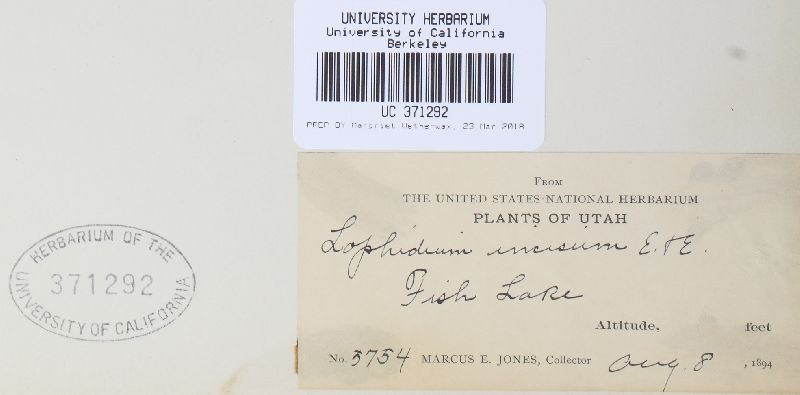 UNIVERSITY HERBARIUM
University of California
Berkeley
UC 371292
PREP BY Margriet Wetherwax, 23 Mar 2018
FROM
THE UNITED STATES NATIONAL HERBARIUM
PLANTS OF UTAH
Lophidium incisum E. & E.
Fish Lake
Altitude, feet
No. 5754 MARCUS E. JONES, Collector Aug. 8, 1894
HERBARIUM OF THE
371292
UNIVERSITY OF CALIFORNIA